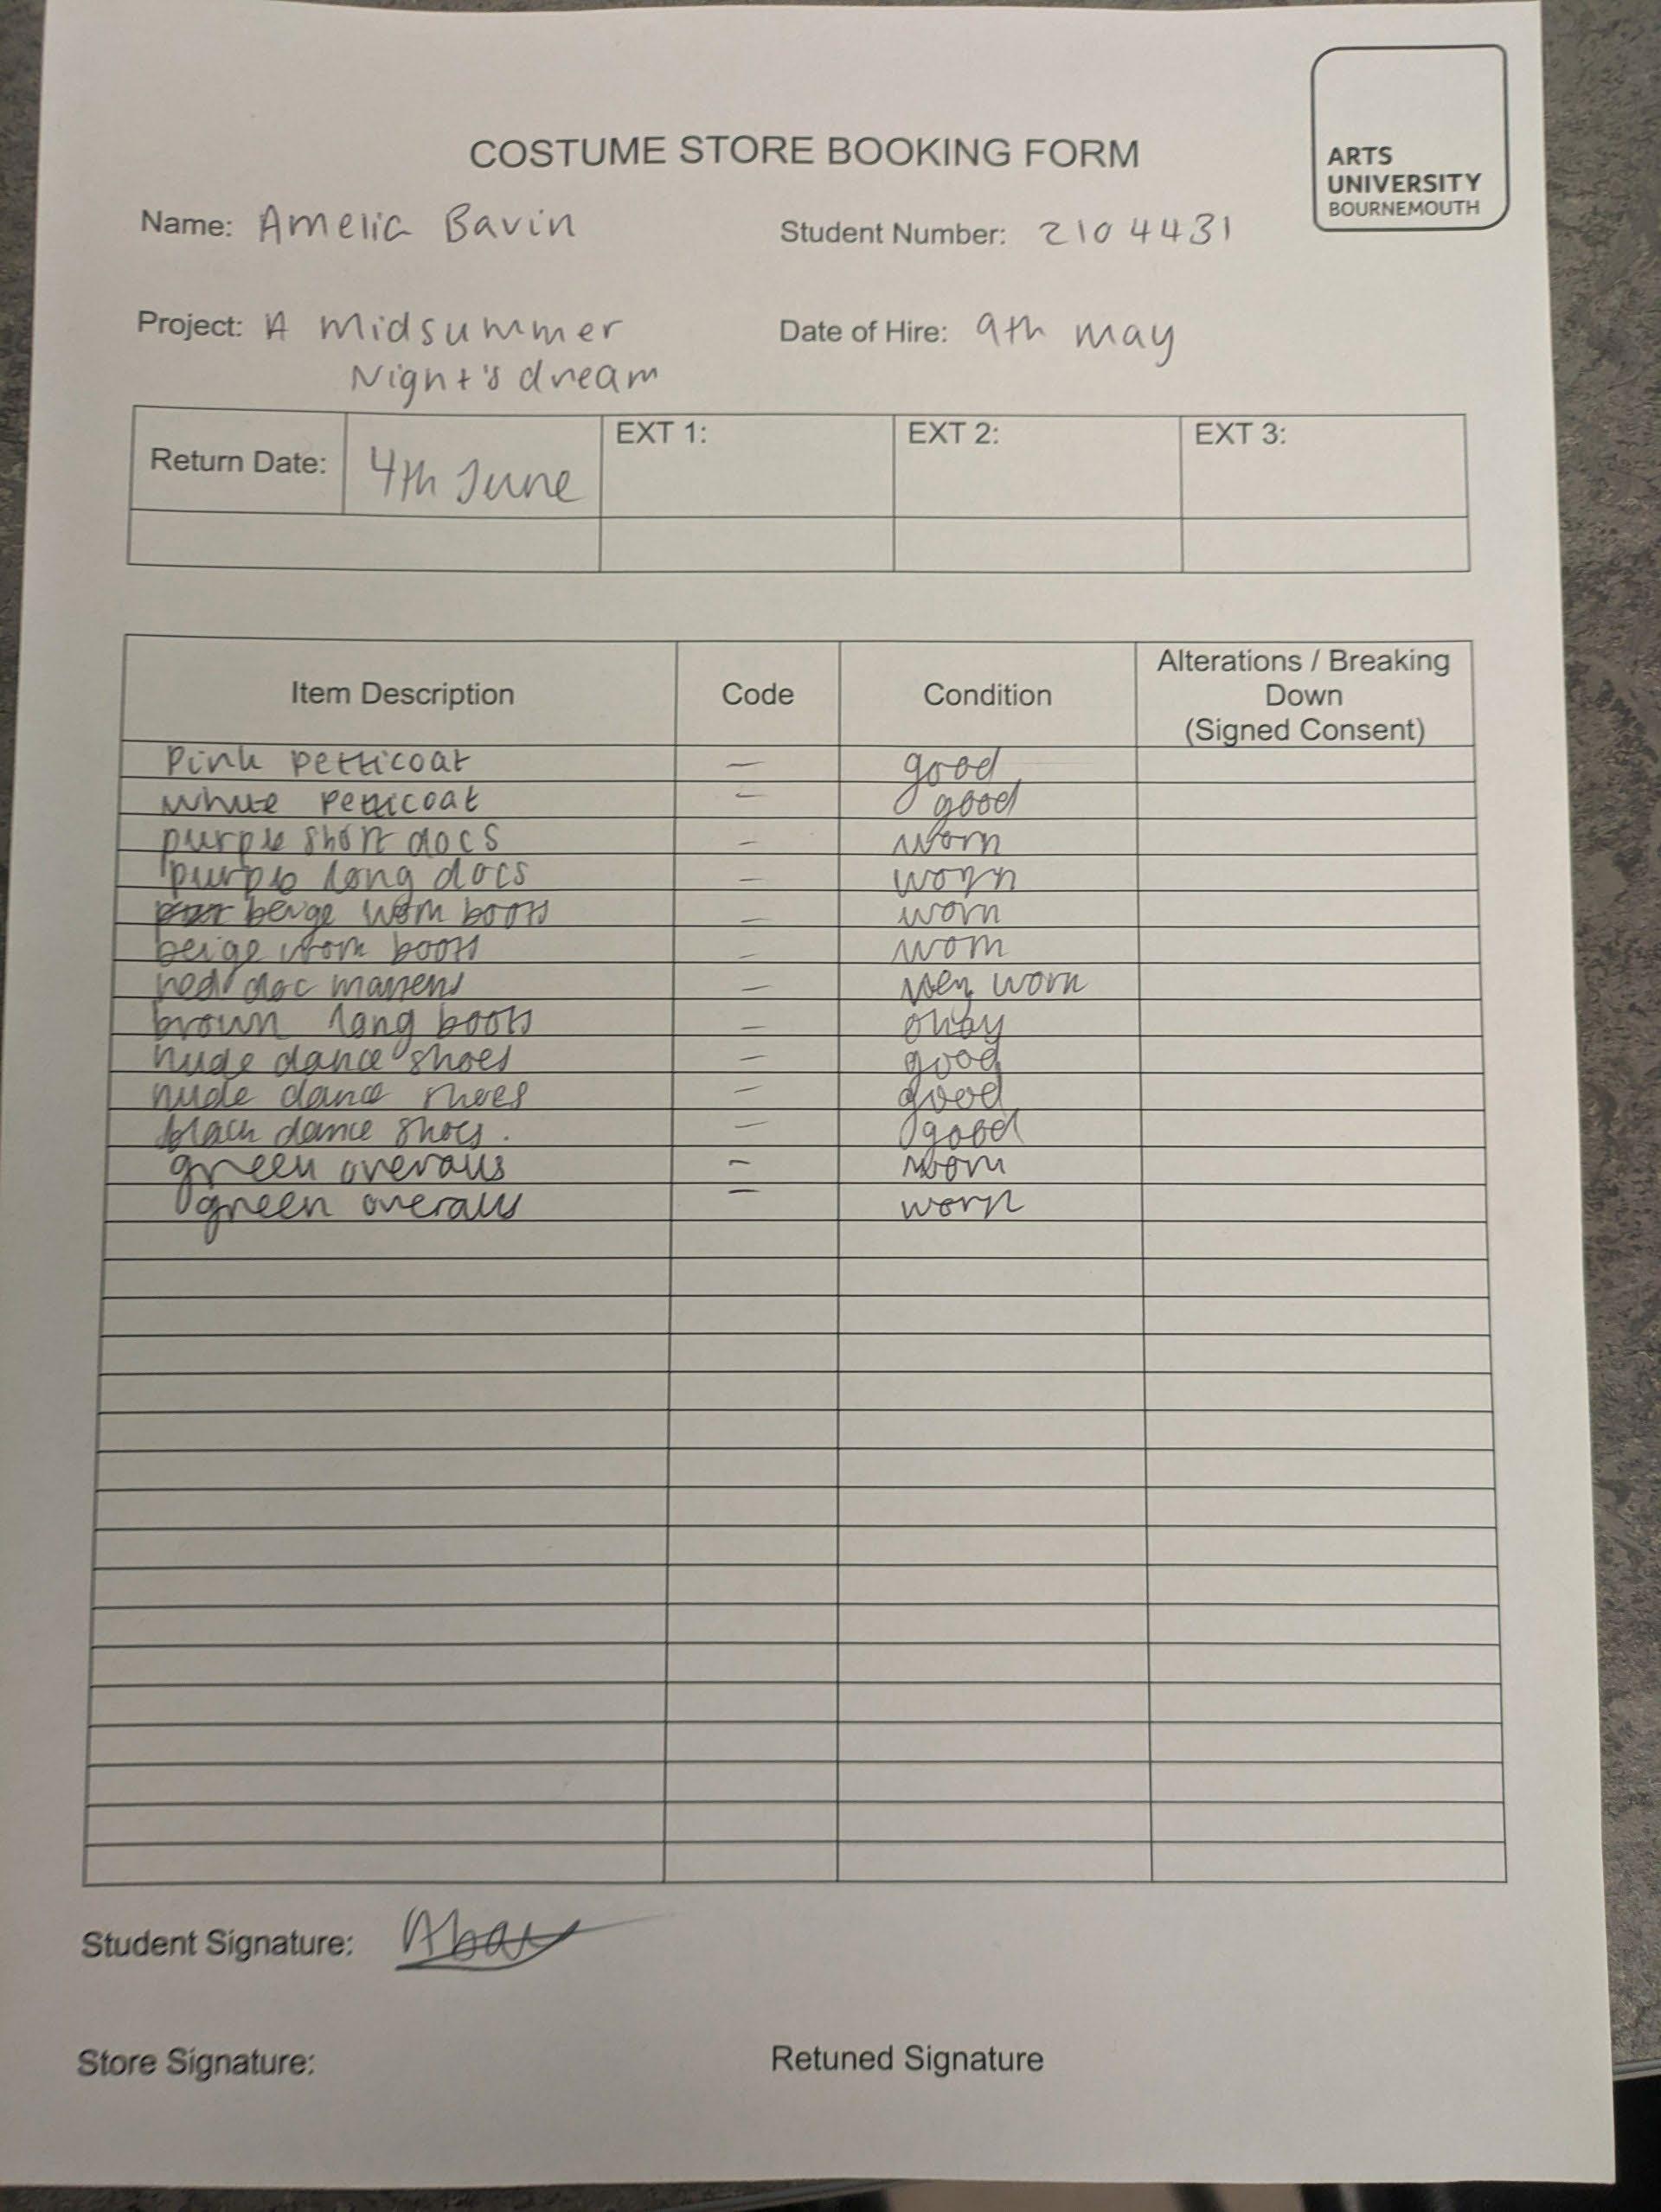 COSTUME STORE BOOKING FORM
ARTS
UNIVERSITY
BOURNEMOUTH
Name: Amelia Bavin Student Number: 2104431
Project: A Midsummer Date of Hire: 9th may
Night's dream
Return Date: 4th June EXT 1: EXT 2: EXT 3:
Item Description Code Condition Alterations / Breaking
Down
(Signed Consent)
Pink petticoat — good
white petticoat — good
purple short docs — worn
purple long docs — worn
beige worn boots — worn
beige worn boots — worn
red doc martens — very worn
brown long boots — okay
nude dance shoes — good
nude dance shoes — good
black dance shoes. — good
green overalls — worn
green overalls — worn
Student Signature:
Store Signature: Retuned Signature